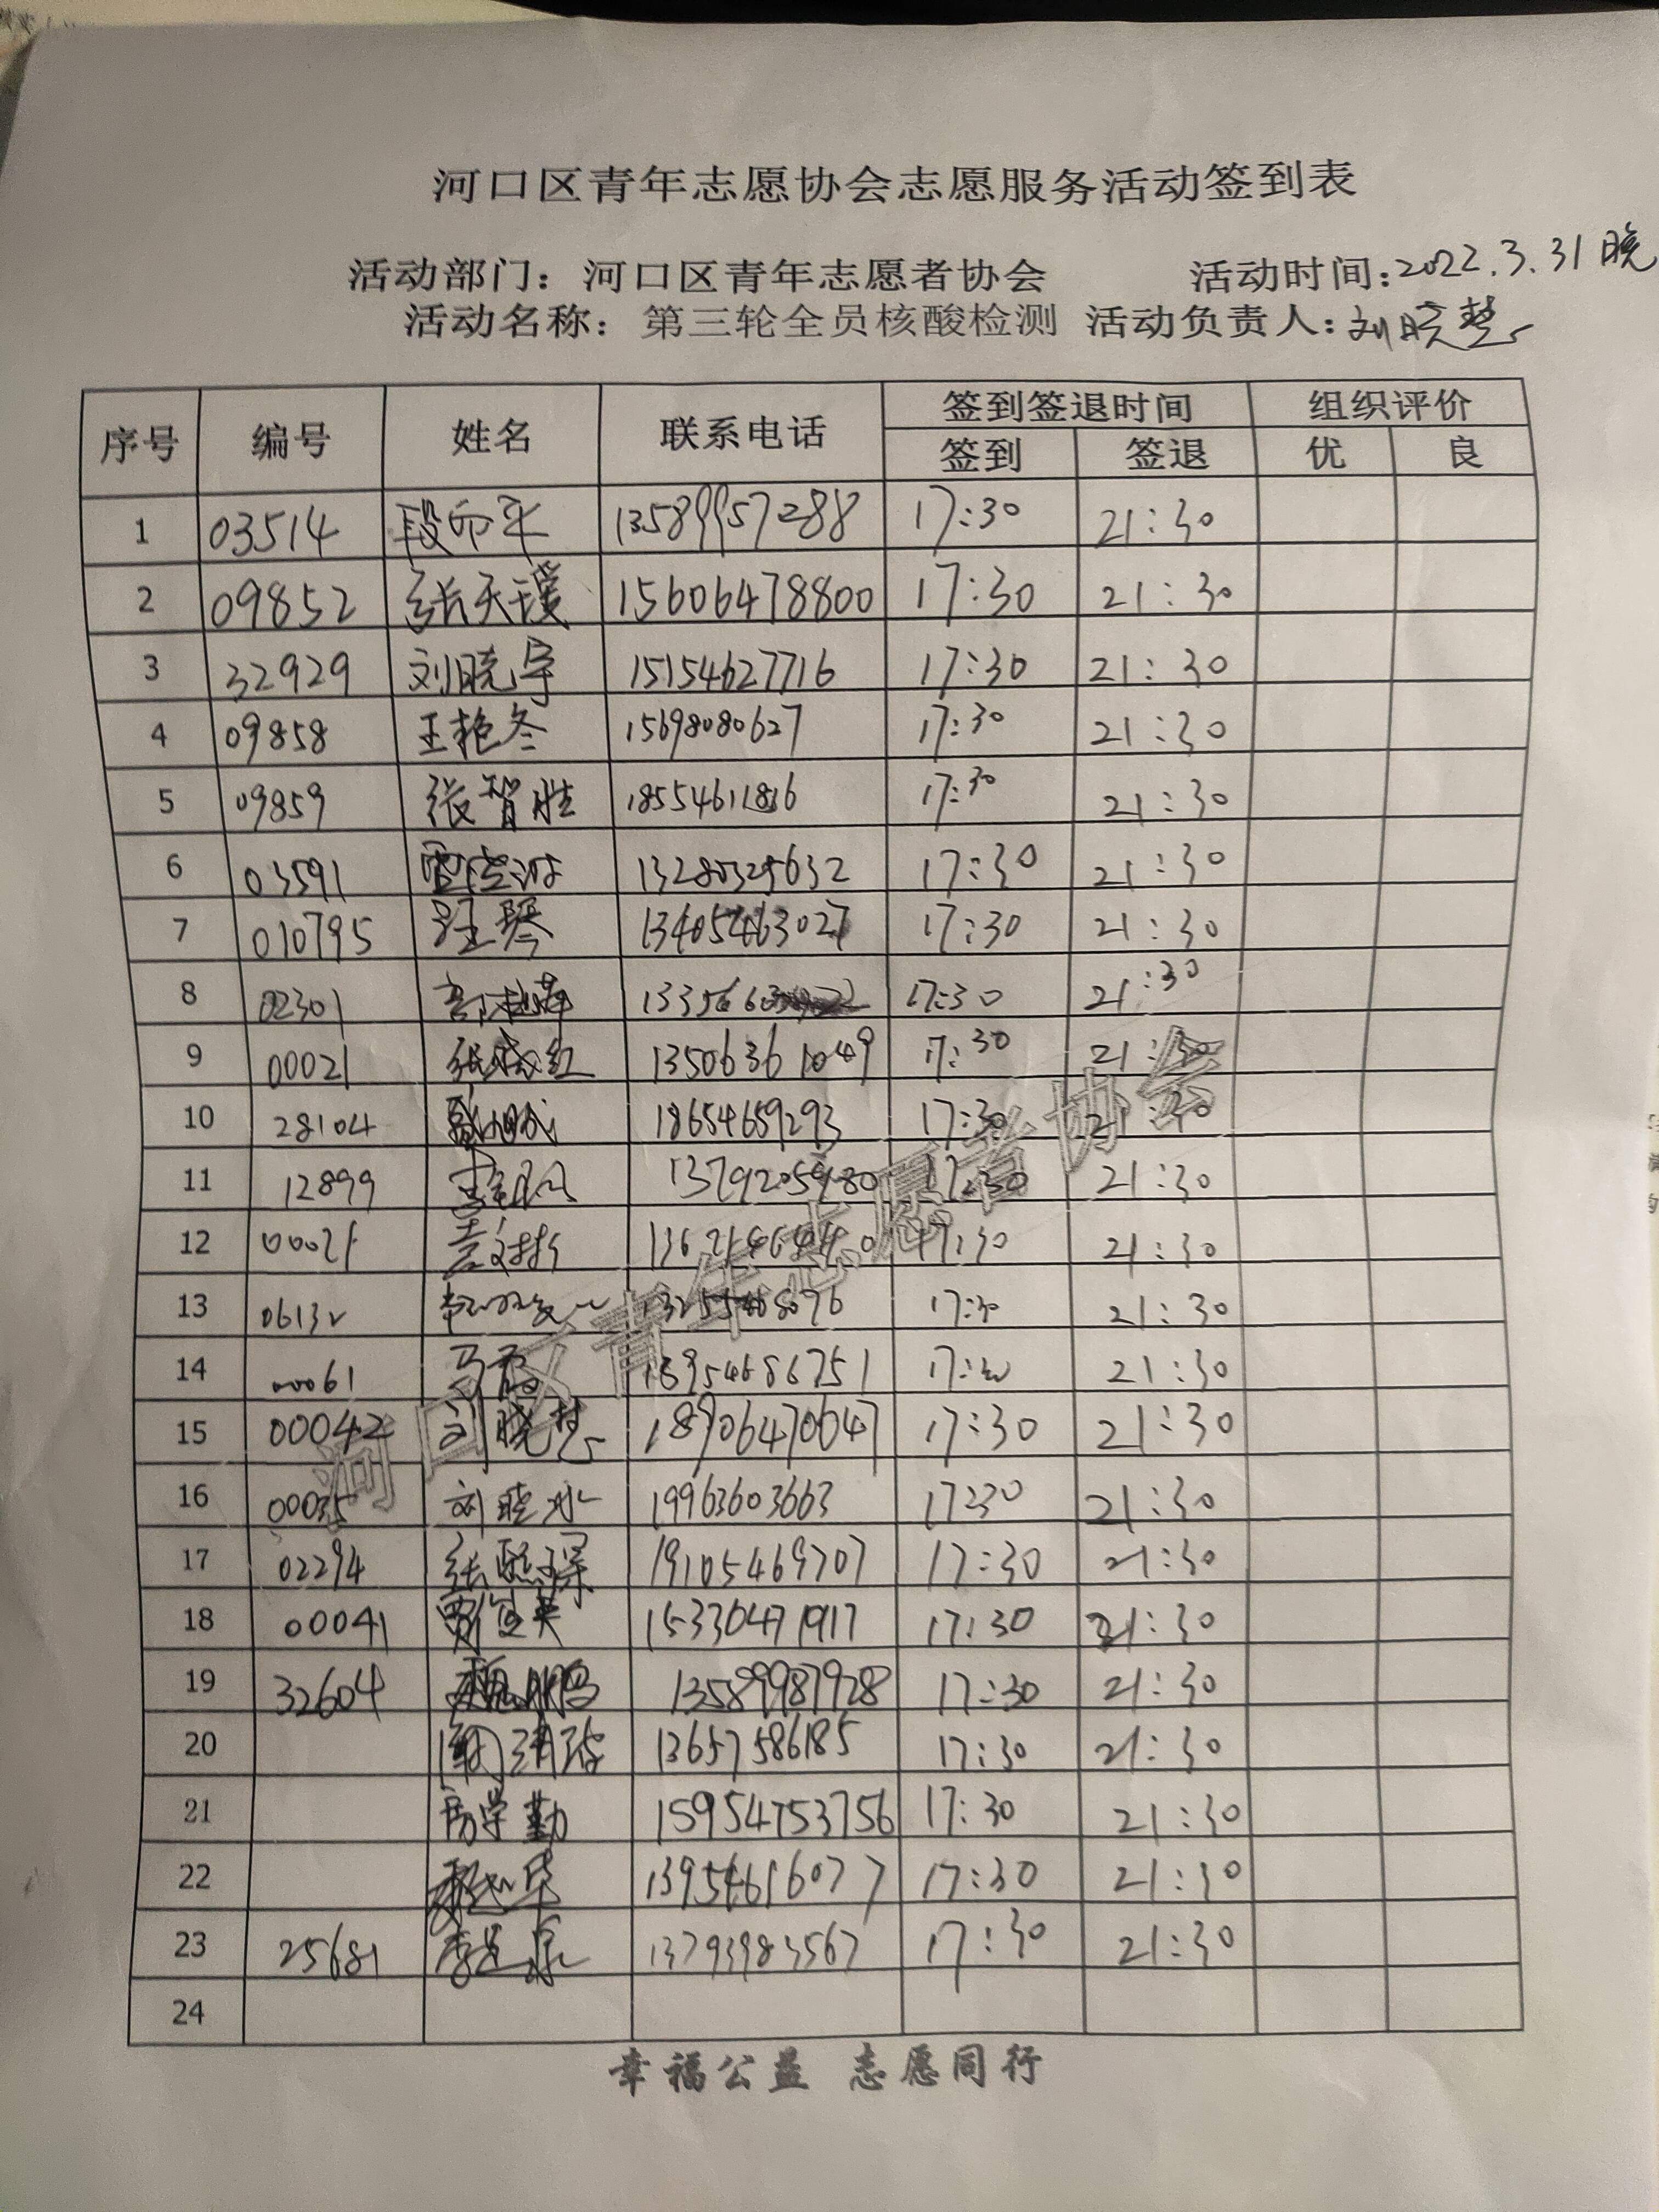 河口区青年志愿协会志愿服务活动签到表
活动部门：河口区青年志愿者协会 活动时间：2022.3.31晚
活动名称：第三轮全员核酸检测 活动负责人：刘晓慧
序号 编号 姓名 联系电话 签到签退时间 组织评价
签到 签退 优 良
1 03514 13589957288 17:30 21:30
2 09852 张天瑷 15606478800 17:30 21:30
3 32929 刘晓宇 15154627716 17:30 21:30
4 09858 王艳冬 15698080627 17:30 21:30
5 09859 张智胜 18554611816 17:30 21:30
6 03591 13280325632 17:30 21:30
7 010795 17:30 21:30
8 02301 17:30 21:30
9 00021 13506361049 17:30 21:30
10 28104 18654659293 17:30 21:30
11 12899 17:30 21:30
12 17:30 21:30
13 17:30 21:30
14 00061 17:30 21:30
15 00042 刘晓慧 18906470647 17:30 21:30
16 00035 刘晓冰 19963603663 17:30 21:30
17 02294 19105469707 17:30 21:30
18 00041 贾宜英 15330471917 17:30 21:30
19 32604 13589987928 17:30 21:30
20 13657586185 17:30 21:30
21 房学勤 15954753756 17:30 21:30
22 13954616077 17:30 21:30
23 25681 13793983567 17:30 21:30
24
河口区青年志愿者协会
幸福公益 志愿同行